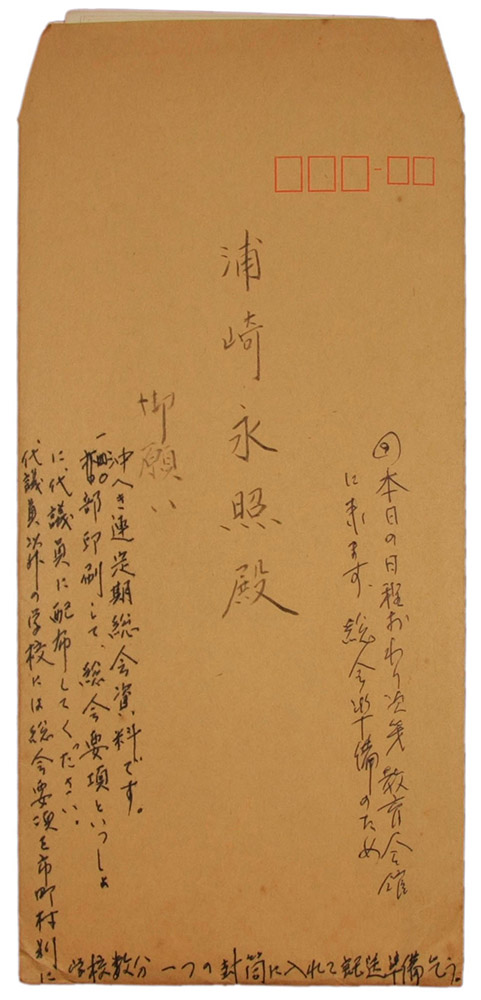 浦崎永照殿
御願い
㊁本日の日程おわり次第教育会館
に来ます、総会準備のため
沖へき連定期総会資料です。
部印刷して、総会要項といっしょ
に、代議員に配布してください。
代議員以外の学校には総会要項を市町村別に
学校数分 一つの封筒に入れて配送準備乞う。